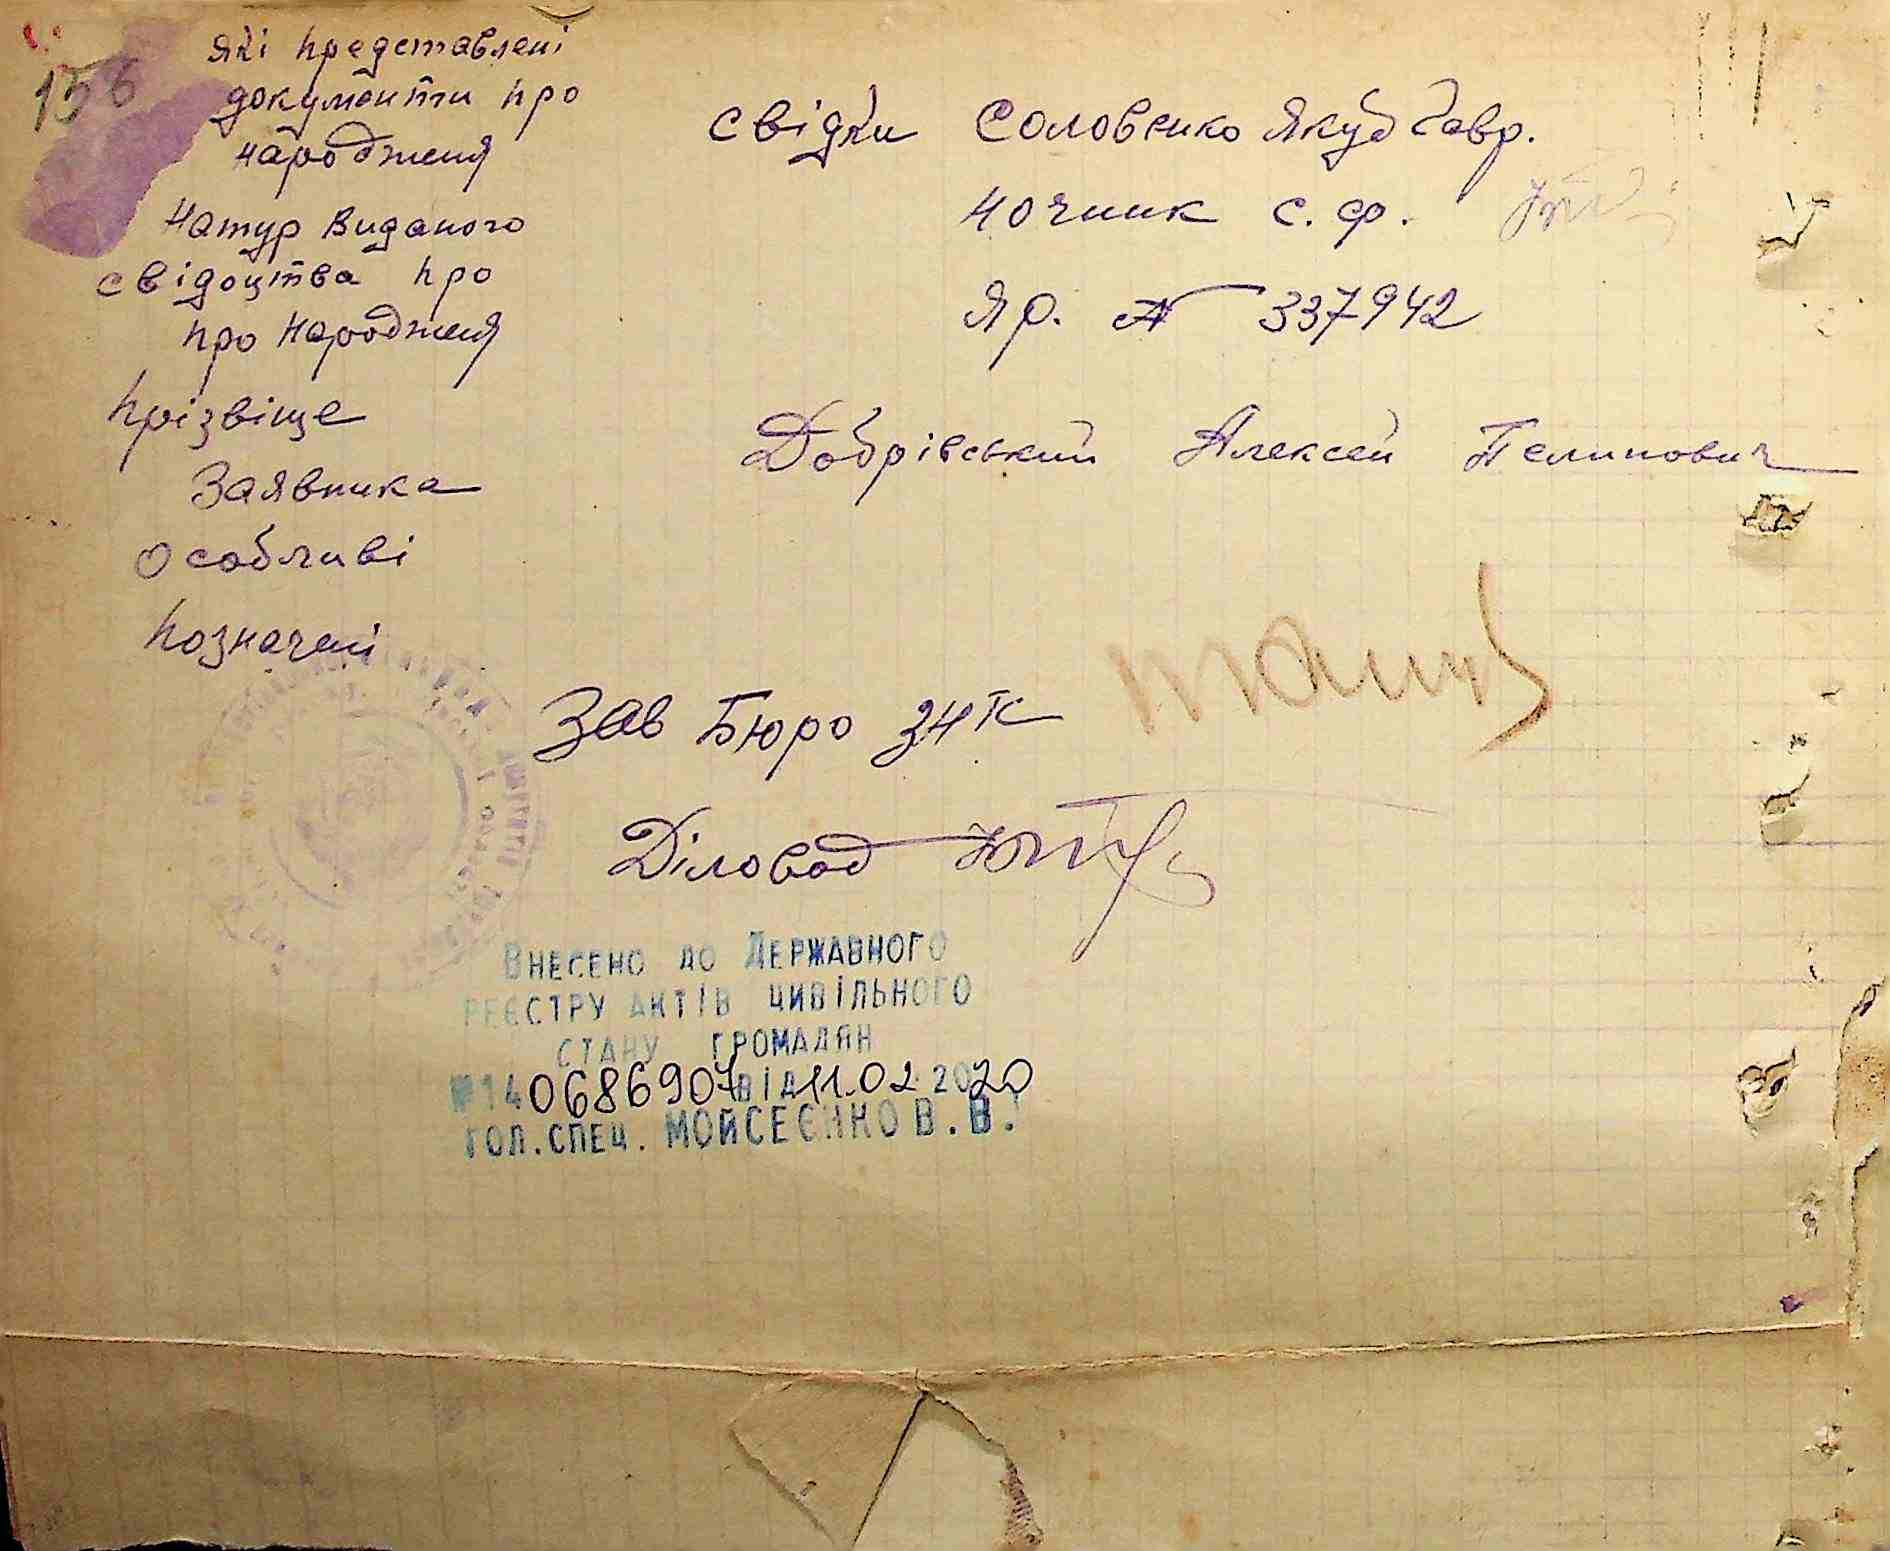 156
які представлені
документи про
народженя
свідки Соловенко Якуб Гавр.
Ночник с. ф.
Натур Виданого
свідоцтва про
про Народженя
ЯР. № 337942
Прізвіще
Заявника
Добрівський Алексей Пелипович
Особливі
Позначені
Зав Бюро ЗНК
Діловод
Внесено до Державного
реєстру актів цивільного
стану громадян
№140686907 від 11.02.2020
Гол.спец. Мойсеєнко В.В.